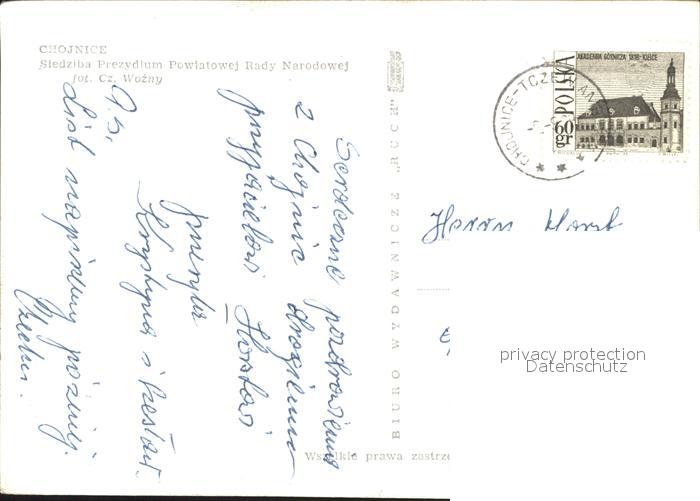 CHOJNICE
Siedziba Prezydium Powiatowej Rady Narodowej
fot. Cz. Woźny
Serdeczne pozdrowienia
z Chojnic drogiemu
przyjacielowi Horstowi
przesyła
Krystyna i Czesław.
P.S.
List napiszemy później.
Czesław.
BIURO WYDAWNICZE „RUCH”
Wszelkie prawa zastrze
AKADEMIA GÓRNICZA 1816-KIELCE
POLSKA
60 gr
CHOJNICE-TCZEW
Herrn Horst
privacy protection
Datenschutz